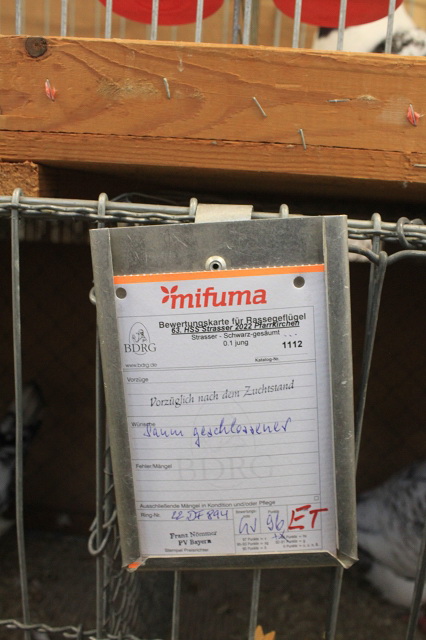 mifuma
Bewertungskarte für Rassegeflügel
63. HSS Strasser 2022 Pfarrkirchen
Strasser - Schwarz-gesäumt
0.1 jung
1112
BDRG
Katalog-Nr.
www.bdrg.de
Vorzüge
Vorzüglich nach dem Zuchtstand
Wünsche
Saum geschlossener
Fehler/Mängel
BDRG
Ausschließende Mängel in Kondition und/oder Pflege
Ring-Nr. 22 DF 894
96 ET
Franz Nömmer
PV Bayern
Stempel Preisrichter